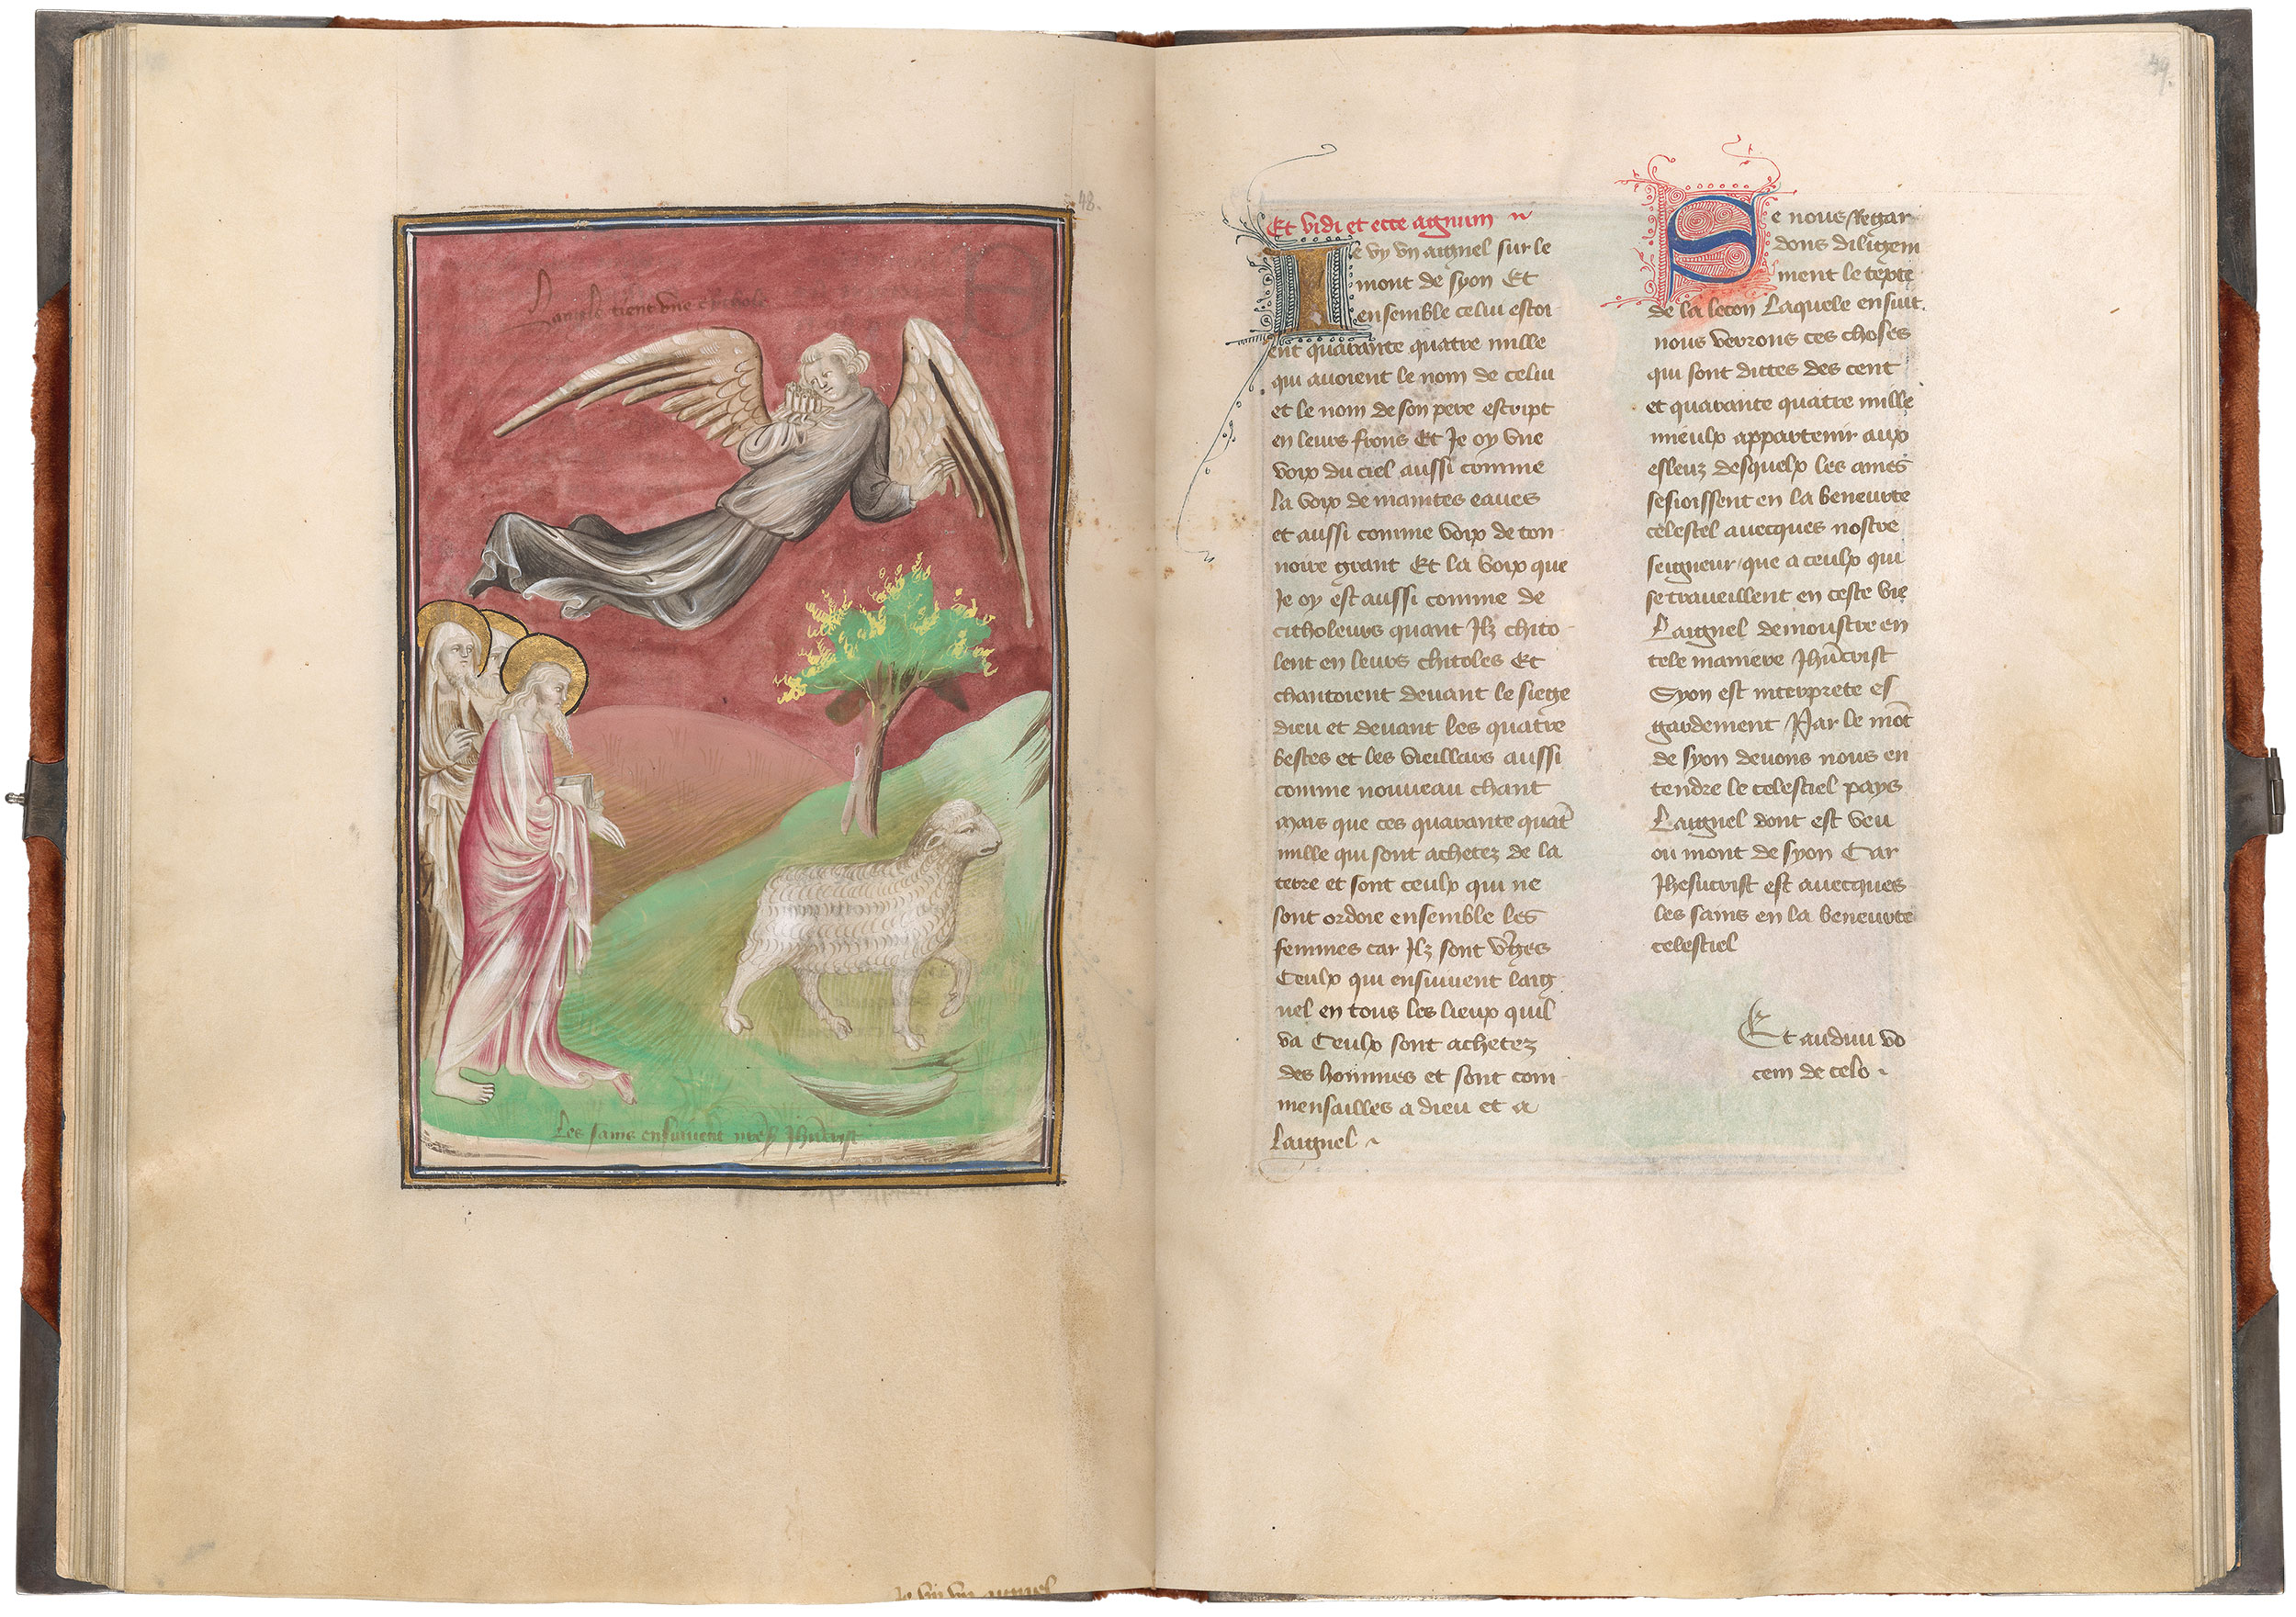 48.
Langele tient une cithole
Les sains ensuivent nre s Jhucrist
Je vy vn aignel
49.
Et vidi et ecce agnum
Je vy vn aignel sur le
mont de syon Et
ensemble celui estoi
ent quarante quatre mille
qui auoient le nom de celui
et le nom de son pere escript
en leurs frons Et Je oy vne
voix du ciel aussi comme
la voix de maintes eaues
et aussi comme voix de ton
noire grant Et la voix que
Je oy est aussi comme de
citholeurs quant Ilz chito
lent en leurs chitoles Et
chantoient deuant le siege
dieu et deuant les quatre
bestes et les vieillars aussi
comme nouueau chant
Mais que ces quarante quat
mille qui sont achetez de la
terre et sont ceulx qui ne
sont ordoie ensemble les
femmes car Ilz sont vges
Ceulx qui ensuiuent laig
nel en tous les lieux quil
va Ceulx sont achetez
des hommes et sont com
mensailles a dieu et a
laignel
Se nous Regar
dons diligem
ment le texte
de la lecon Laquele ensuit
nous verrons ces choses
qui sont dictes des cent
et quarante quatre mille
mieulx appartenir aux
esleuz desquelx les ames
sesioissent en la beneurte
celestel auecques nostre
seigneur que a ceulx qui
se traueillent en ceste vie
Laignel demoustre en
tele maniere Jhucrist
Syon est interprete es
gardement Par le mot
de syon deuons nous en
tendre le celestiel pays
Laignel dont est veu
ou mont de syon Car
Jhesucrist est auecques
les sains en la beneurte
celestiel
Et audiui vo
cem de celo